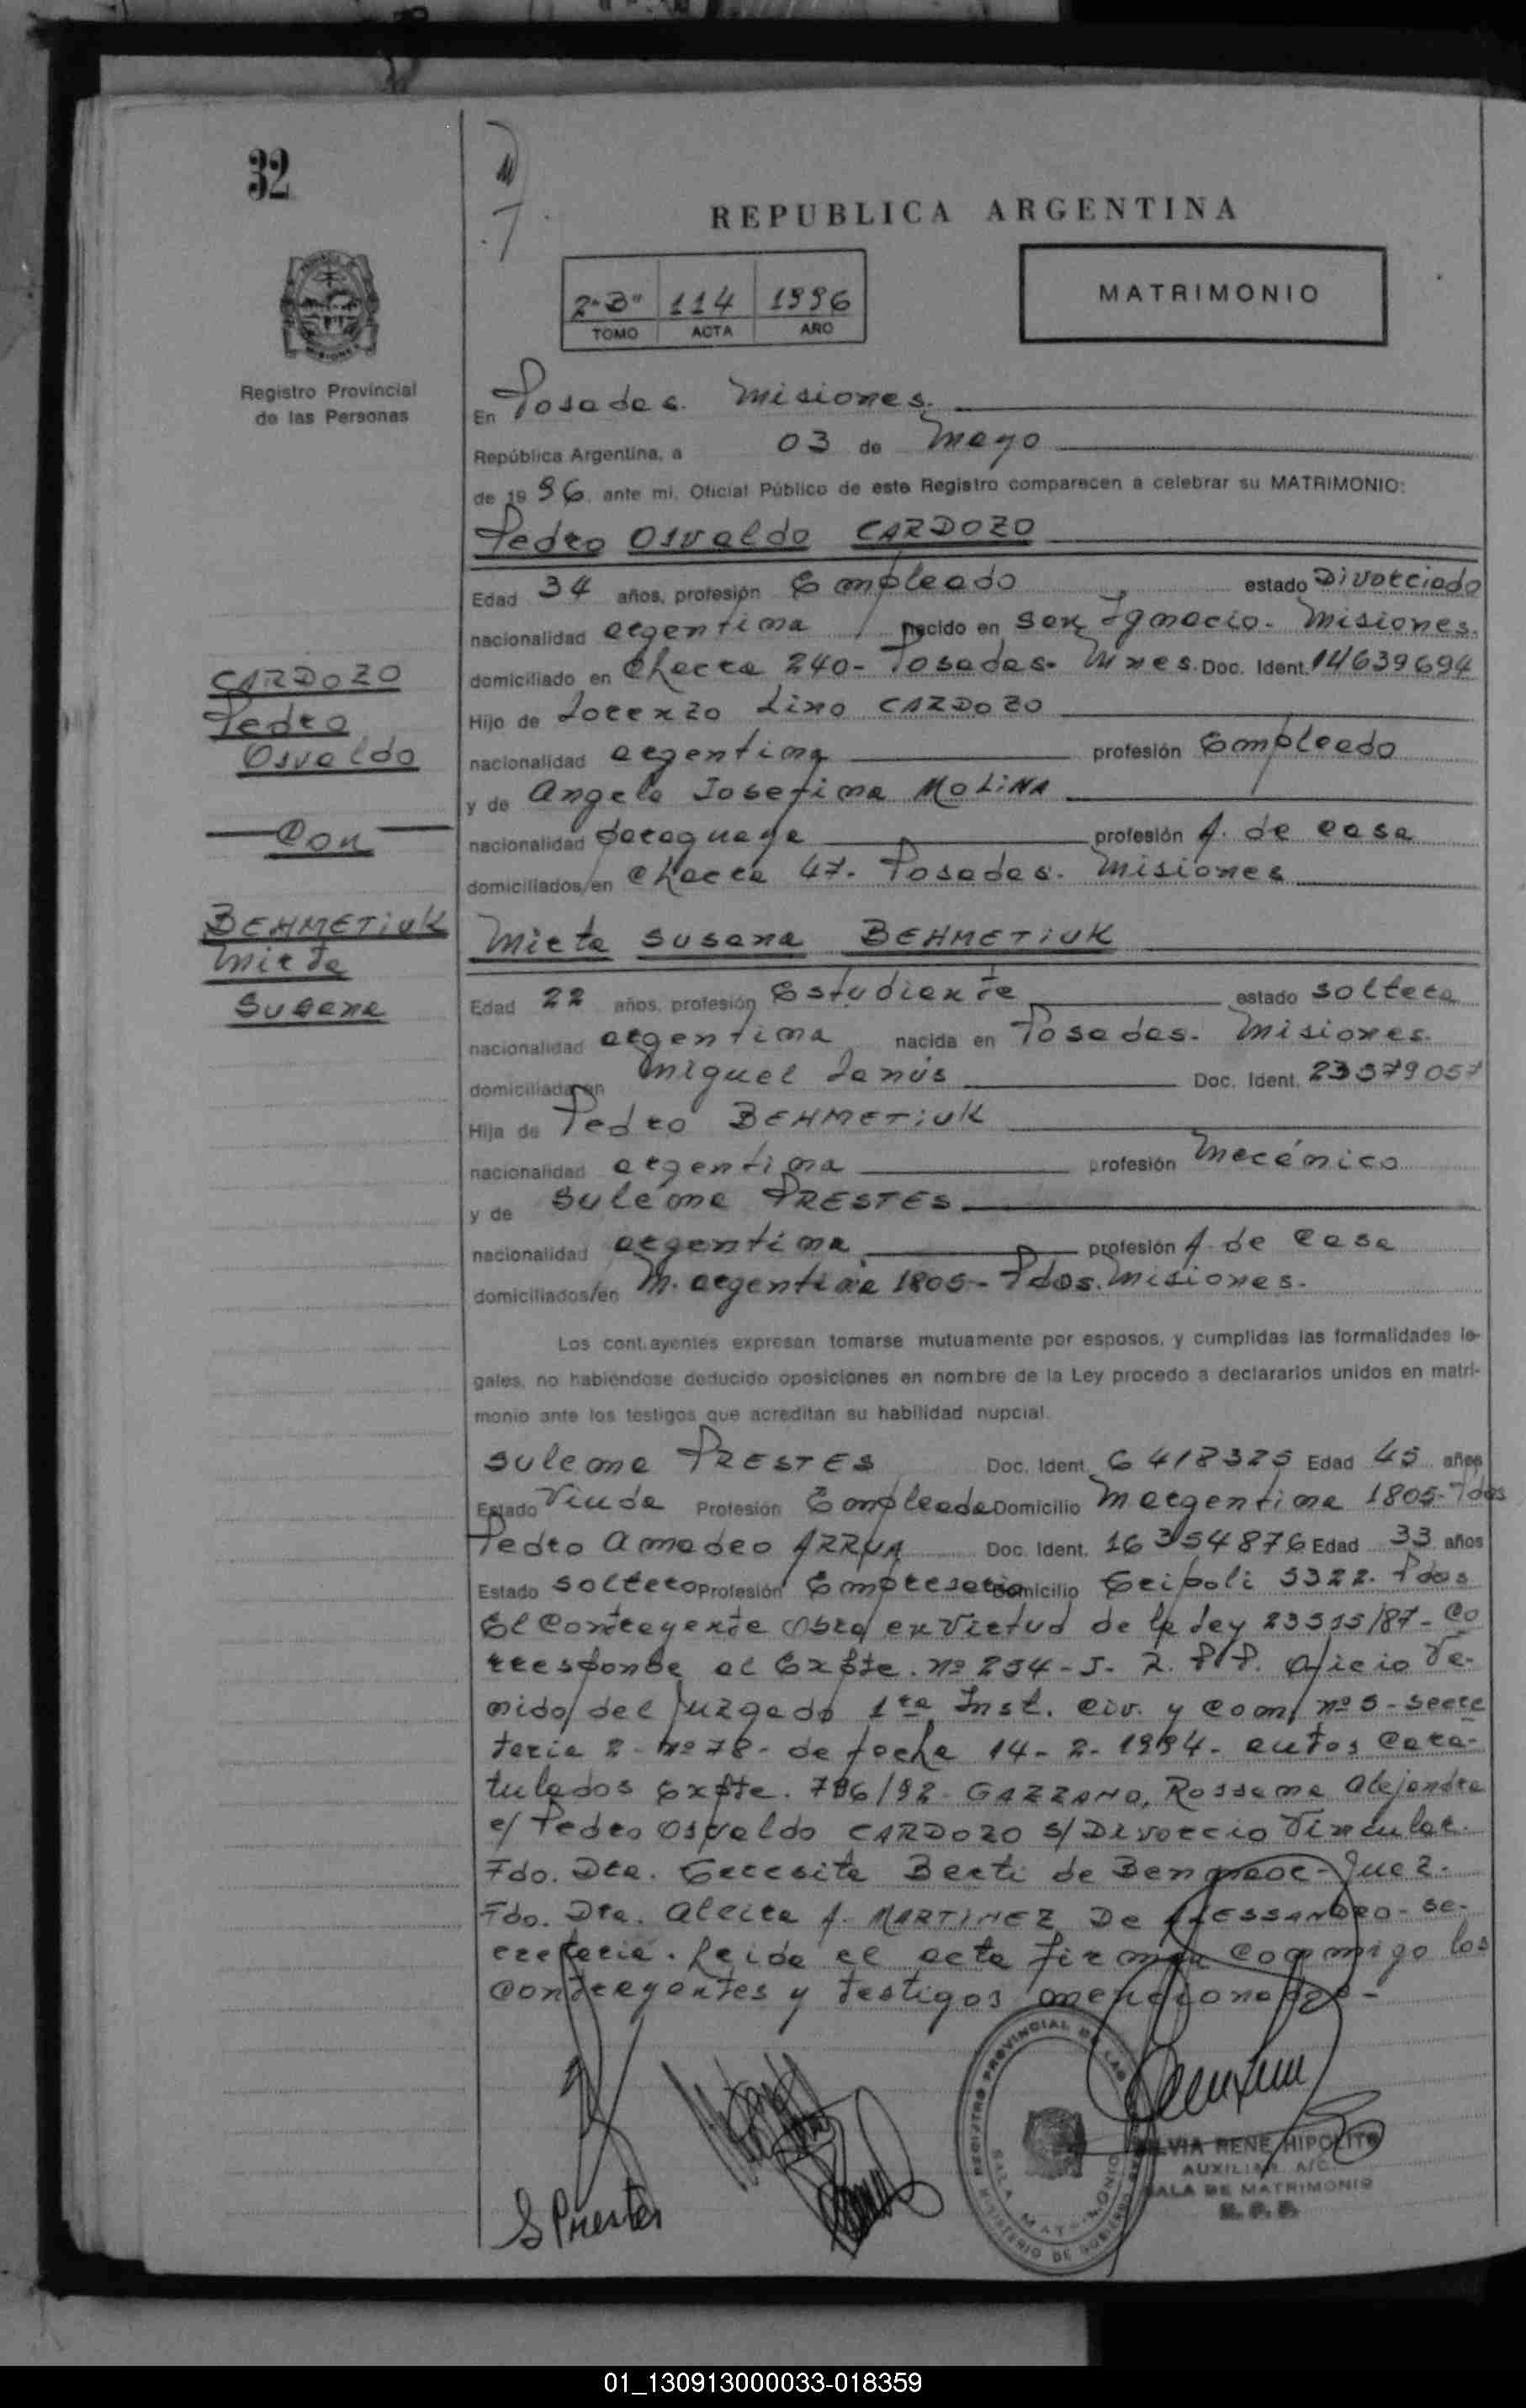 32
REPUBLICA ARGENTINA
2"B" 114 1996
TOMO ACTA AÑO
MATRIMONIO
Registro Provincial
de las Personas
En Posadas. Misiones.
República Argentina, a 03 de Mayo
de 1996. ante mi, Oficial Público de este Registro comparecen a celebrar su MATRIMONIO:
Pedro Osvaldo CARDOZO
Edad 34 años, profesión Empleado estado Divorciado
nacionalidad argentina nacido en San Ignacio - Misiones.
domiciliado en Chacra 240 - Posadas - Mnes. Doc. Ident. 14639694
Hijo de Lorenzo Lino CARDOZO
nacionalidad argentina profesión Empleado
y de Angela Josefina MOLINA
nacionalidad paraguaya profesión A. de casa
domiciliados/en Chacra 47. Posadas. Misiones
CARDOZO
Pedro
Osvaldo
Con
BEHMETIUK
Mirta
Susana
Mirta Susana BEHMETIUK
Edad 22 años, profesión Estudiante estado soltera
nacionalidad argentina nacida en Posadas. Misiones.
domiciliada en Miguel Lanús Doc. Ident. 23379057
Hija de Pedro BEHMETIUK
nacionalidad argentina profesión Mecánico
y de Sulema PRESTES
nacionalidad argentina profesión A. de casa
domiciliados/en M. argentina 1805 - Pdas. Misiones.
Los contrayentes expresan tomarse mutuamente por esposos, y cumplidas las formalidades le-
gales, no habiéndose deducido oposiciones en nombre de la Ley procedo a declararlos unidos en matri-
monio ante los testigos que acreditan su habilidad nupcial.
Sulema PRESTES Doc. Ident. 6418325 Edad 45 años
Estado Viuda Profesión Empleada Domicilio M argentina 1805 - Pdas
Pedro Amadeo ARRUA Doc. Ident. 16354876 Edad 33 años
Estado soltero Profesión Empresario Domicilio Tripoli 3322. Pdas
El Contrayente obra en Virtud de la Ley 23515/87 - Co
rresponde al Expte. nº 254 - J - R. P. P. oficio Ve-
nido del Juzgado 1ra Inst. Civ. y Com. nº 5 - Secre
taria 2 - nº 78 - de fecha 14 - 2 - 1994 - autos cara-
tulados Expte. 786/92 - GAZZANO, Rossana Alejandra
c/ Pedro Osvaldo CARDOZO s/ Divorcio Vincular.
Fdo. Dra. Teresita Berti de - Juez -
Fdo. Dra. Alcira A. MARTINEZ De ALESSANDRO - se-
cretaria. Leida el acta firman conmigo los
contrayentes y testigos mencionados -
S Prestes
REGISTRO PROVINCIAL DE LAS
SALA MATRIMONIO
MINISTERIO DE GOBIERNO
SILVIA RENE HIPOLITO
AUXILIAR A/C
SALA DE MATRIMONIO
R. P. P.
01_130913000033-018359